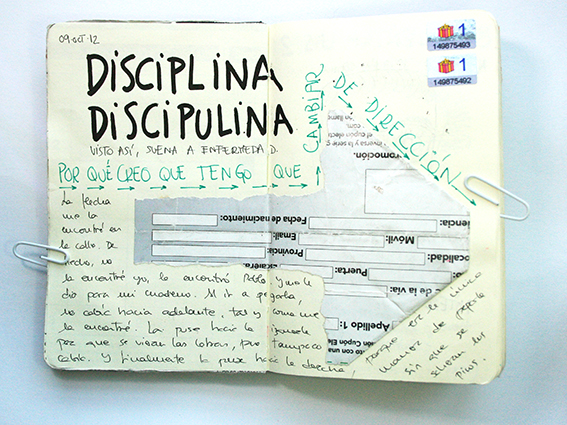 09·oct·12
DISCIPLINA
DISCIPULINA
VISTO ASÍ, SUENA A ENFERMEDAD.
POR QUÉ CREO QUE TENGO QUE CAMBIAR DE DIRECCIÓN
La flecha
me la
encontré en
la calle. De
hecho, no
la encontré yo, la encontró Pablo y me la
dio para mi cuaderno. Al ir a pegarla,
no cabía hacia adelante, tal y como me
la encontré. La puse hacia la izquierda
para que se vieran las letras, pero tampoco
cabía. Y finalmente la puse hacia la derecha,
porque era la única
manera de pegarla
sin que se
salieran los
picos.
1
149875493
1
149875492
romoción.
Fecha de nacimiento:
Email:
Móvil:
Provincia:
Puerta:
de la vía:
Apellido 1: